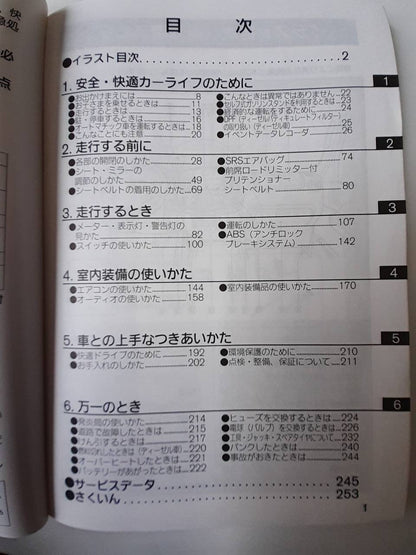 快
処
必
点
目 次
●イラスト目次 2
1. 安全・快適カーライフのために 1
●お出かけまえには 8
●お子さまを乗せるときは 11
●走行するときは 13
●駐・停車するときは 16
●オートマチック車を運転するときは 18
●こんなことにも注意 20
●こんなときは異常ではありません 22
●セルフ式ガソリンスタンドを利用するときは 23
●経済的な運転をするために 24
●DPF（ディーゼルパティキュレートフィルター）
の取り扱い（ディーゼル車） 25
●イベントデータレコーダ 26
2. 走行する前に 2
●各部の開閉のしかた 28
●シート・ミラーの
調節のしかた 49
●シートベルトの着用のしかた 69
●SRSエアバッグ 74
●前席ロードリミッター付
プリテンショナー
シートベルト 80
3. 走行するとき 3
●メーター・表示灯・警告灯の
見かた 82
●スイッチの使いかた 100
●運転のしかた 107
●ABS（アンチロック
ブレーキシステム） 142
4. 室内装備の使いかた 4
●エアコンの使いかた 144
●オーディオの使いかた 158
●室内装備品の使いかた 170
5. 車との上手なつきあいかた 5
●快適ドライブのために 192
●お手入れのしかた 202
●環境保護のために 210
●点検・整備、保証について 211
6. 万一のとき 6
●発炎筒の使いかた 214
●道路で故障したときは 215
●けん引するときは 217
●燃料切れしたときは（ディーゼル車） 220
●オーバーヒートしたときは 221
●バッテリーがあがったときは 222
●ヒューズを交換するときは 224
●電球（バルブ）を交換するときは 226
●工具・ジャッキ・スペアタイヤについて 232
●パンクしたときは 240
●事故がおきたときは 244
●サービスデータ 245
●さくいん 253
1